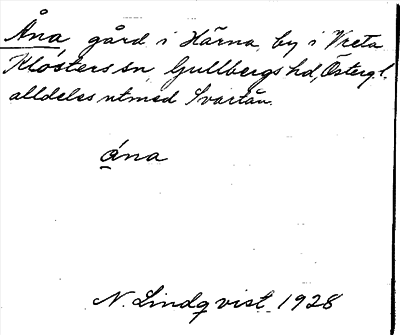 Åna gård i Härna by i Vreta
Klosters sn, Gullbergs hd, Östergl.
alldeles utmed Svartån.
ána
N. Lindqvist 1928